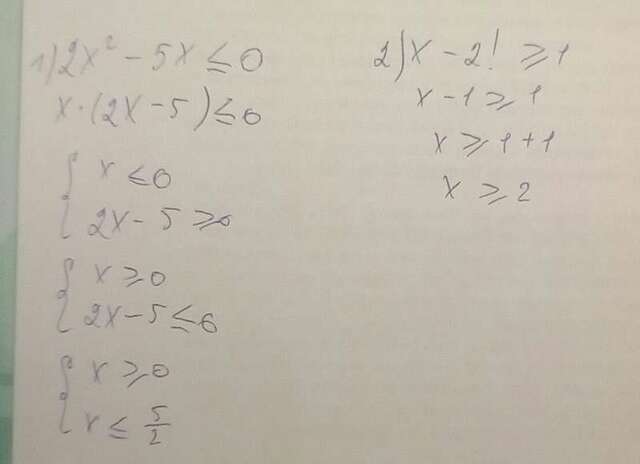 1) 2x² - 5x ≤ 0
x · (2x - 5) ≤ 0
{ x ≤ 0
2x - 5 ≥ 0
{ x ≥ 0
2x - 5 ≤ 0
{ x ≥ 0
x ≤ 5/2
2) x - 2! ≥ 1
x - 1 ≥ 1
x ≥ 1 + 1
x ≥ 2